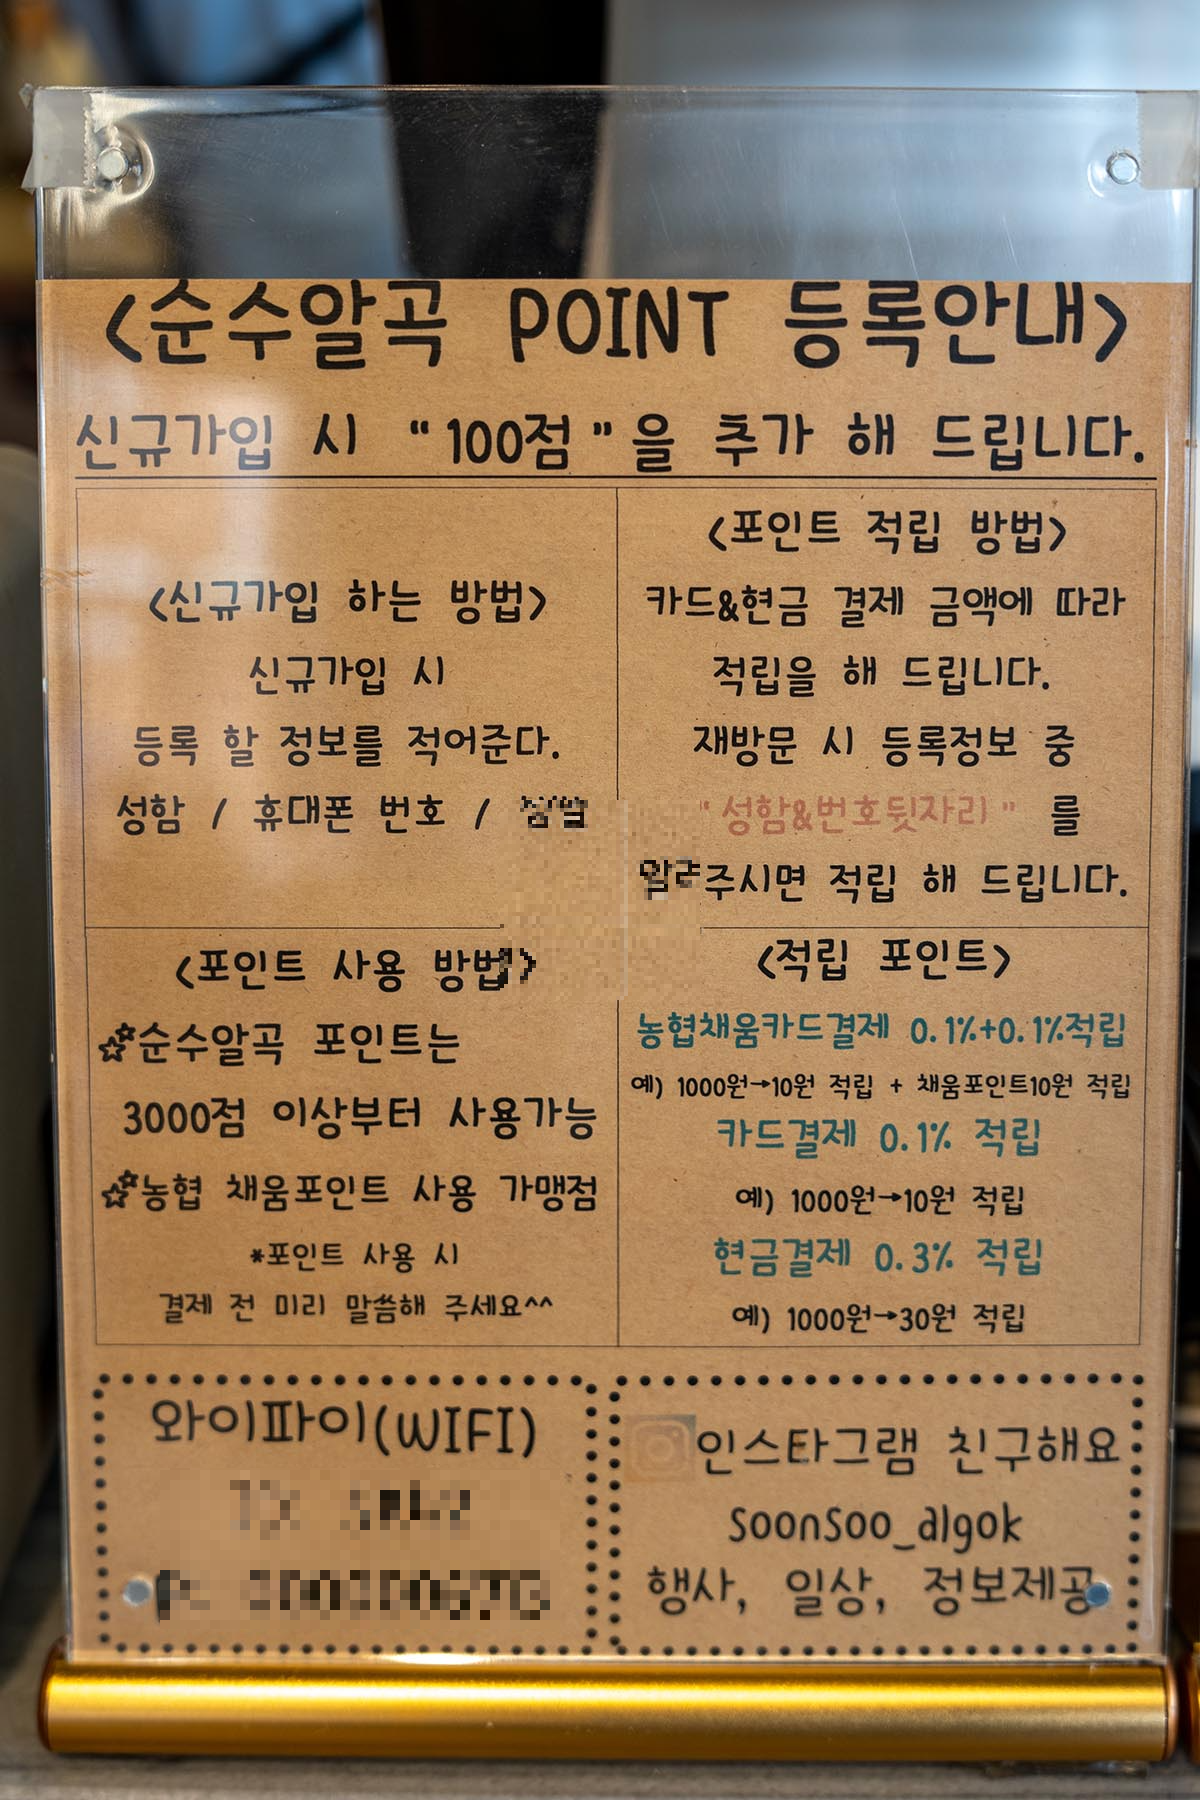 <순수알곡 POINT 등록안내>
신규가입 시 "100점"을 추가 해 드립니다.
<신규가입 하는 방법>
신규가입 시
등록 할 정보를 적어준다.
성함 / 휴대폰 번호 /
<포인트 적립 방법>
카드&현금 결제 금액에 따라
적립을 해 드립니다.
재방문 시 등록정보 중
"성함&번호뒷자리" 를
주시면 적립 해 드립니다.
<포인트 사용 방법>
☆순수알곡 포인트는
3000점 이상부터 사용가능
☆농협 채움포인트 사용 가맹점
*포인트 사용 시
결제 전 미리 말씀해 주세요^^
<적립 포인트>
농협채움카드결제 0.1%+0.1%적립
예) 1000원→10원 적립 + 채움포인트10원 적립
카드결제 0.1% 적립
예) 1000원→10원 적립
현금결제 0.3% 적립
예) 1000원→30원 적립
와이파이(WIFI)
인스타그램 친구해요
soonsoo_algok
행사, 일상, 정보제공